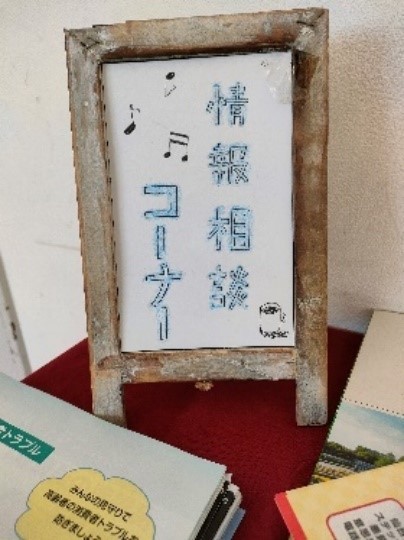 情報相談
コーナー
トラブル
みんなの見守りで
高齢者の消費者トラブルを
防ぎましょう